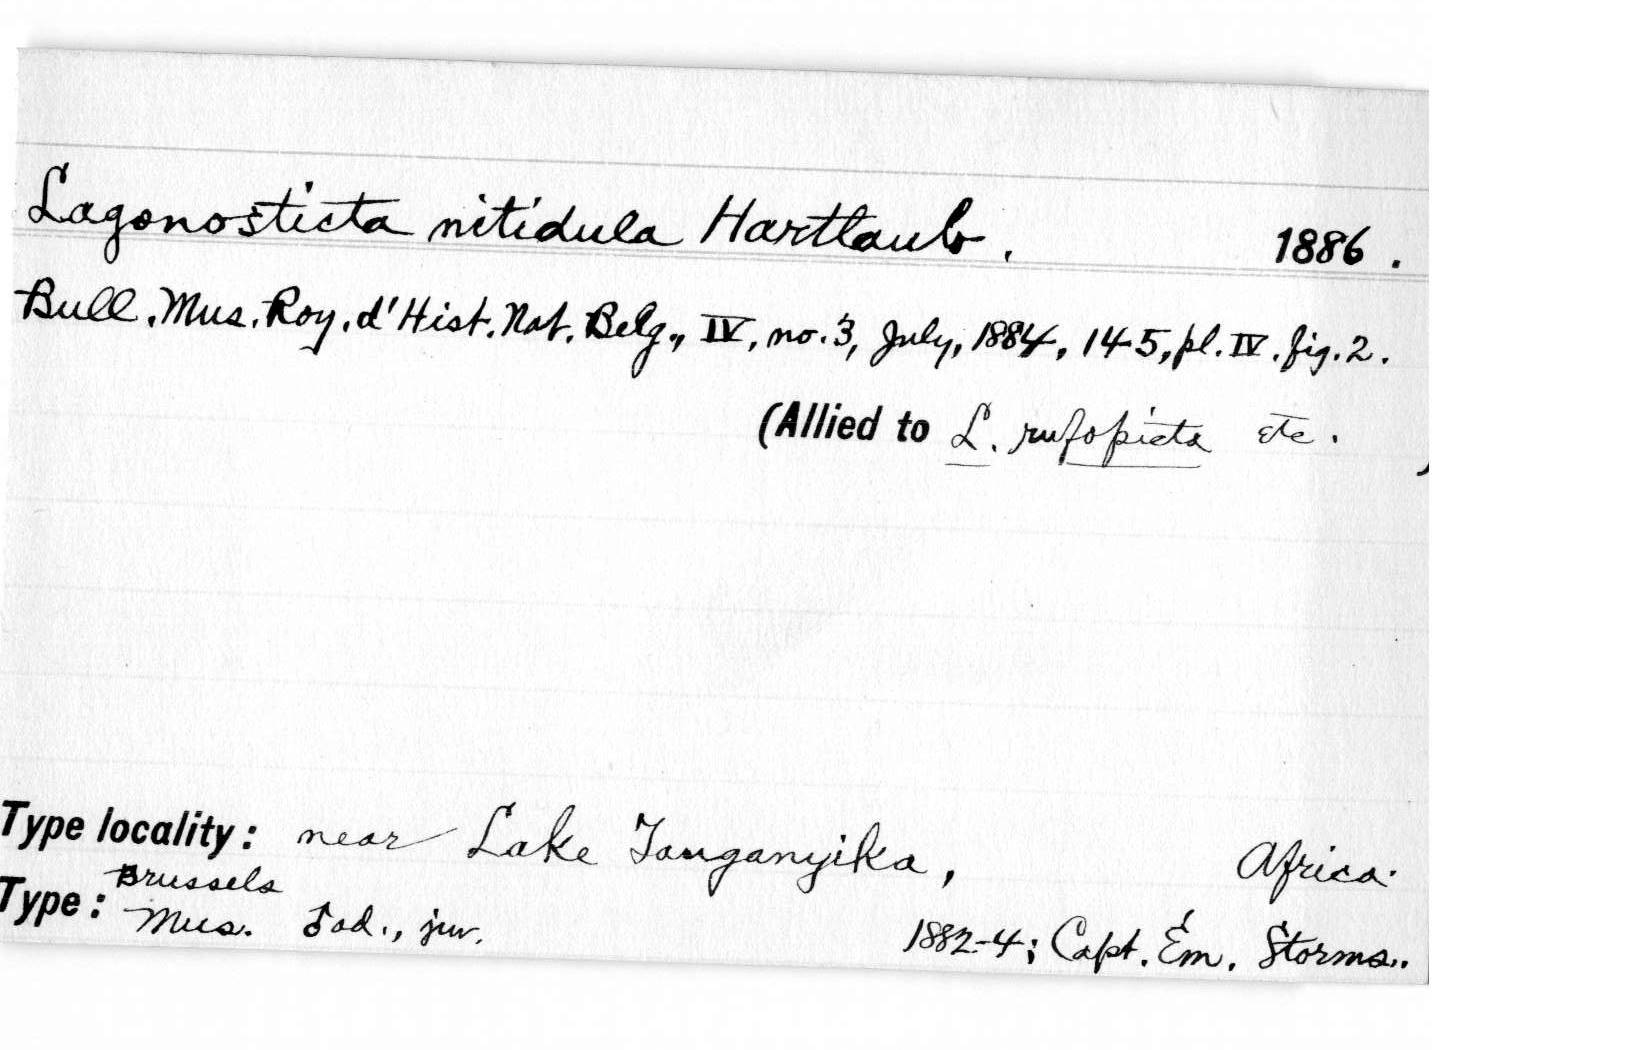 Lagonosticta nitidula Hartlaub. 1886.
Bull. Mus. Roy. d'Hist. Nat. Belg., IV, no. 3, July, 1884, 145, pl. IV. fig. 2.
(Allied to L. rufopicta etc. )
Type locality: near Lake Tanganyika, Africa.
Type: Brussels Mus. ♂ ad., juv. 1882-4; Capt. Ém. Storms..